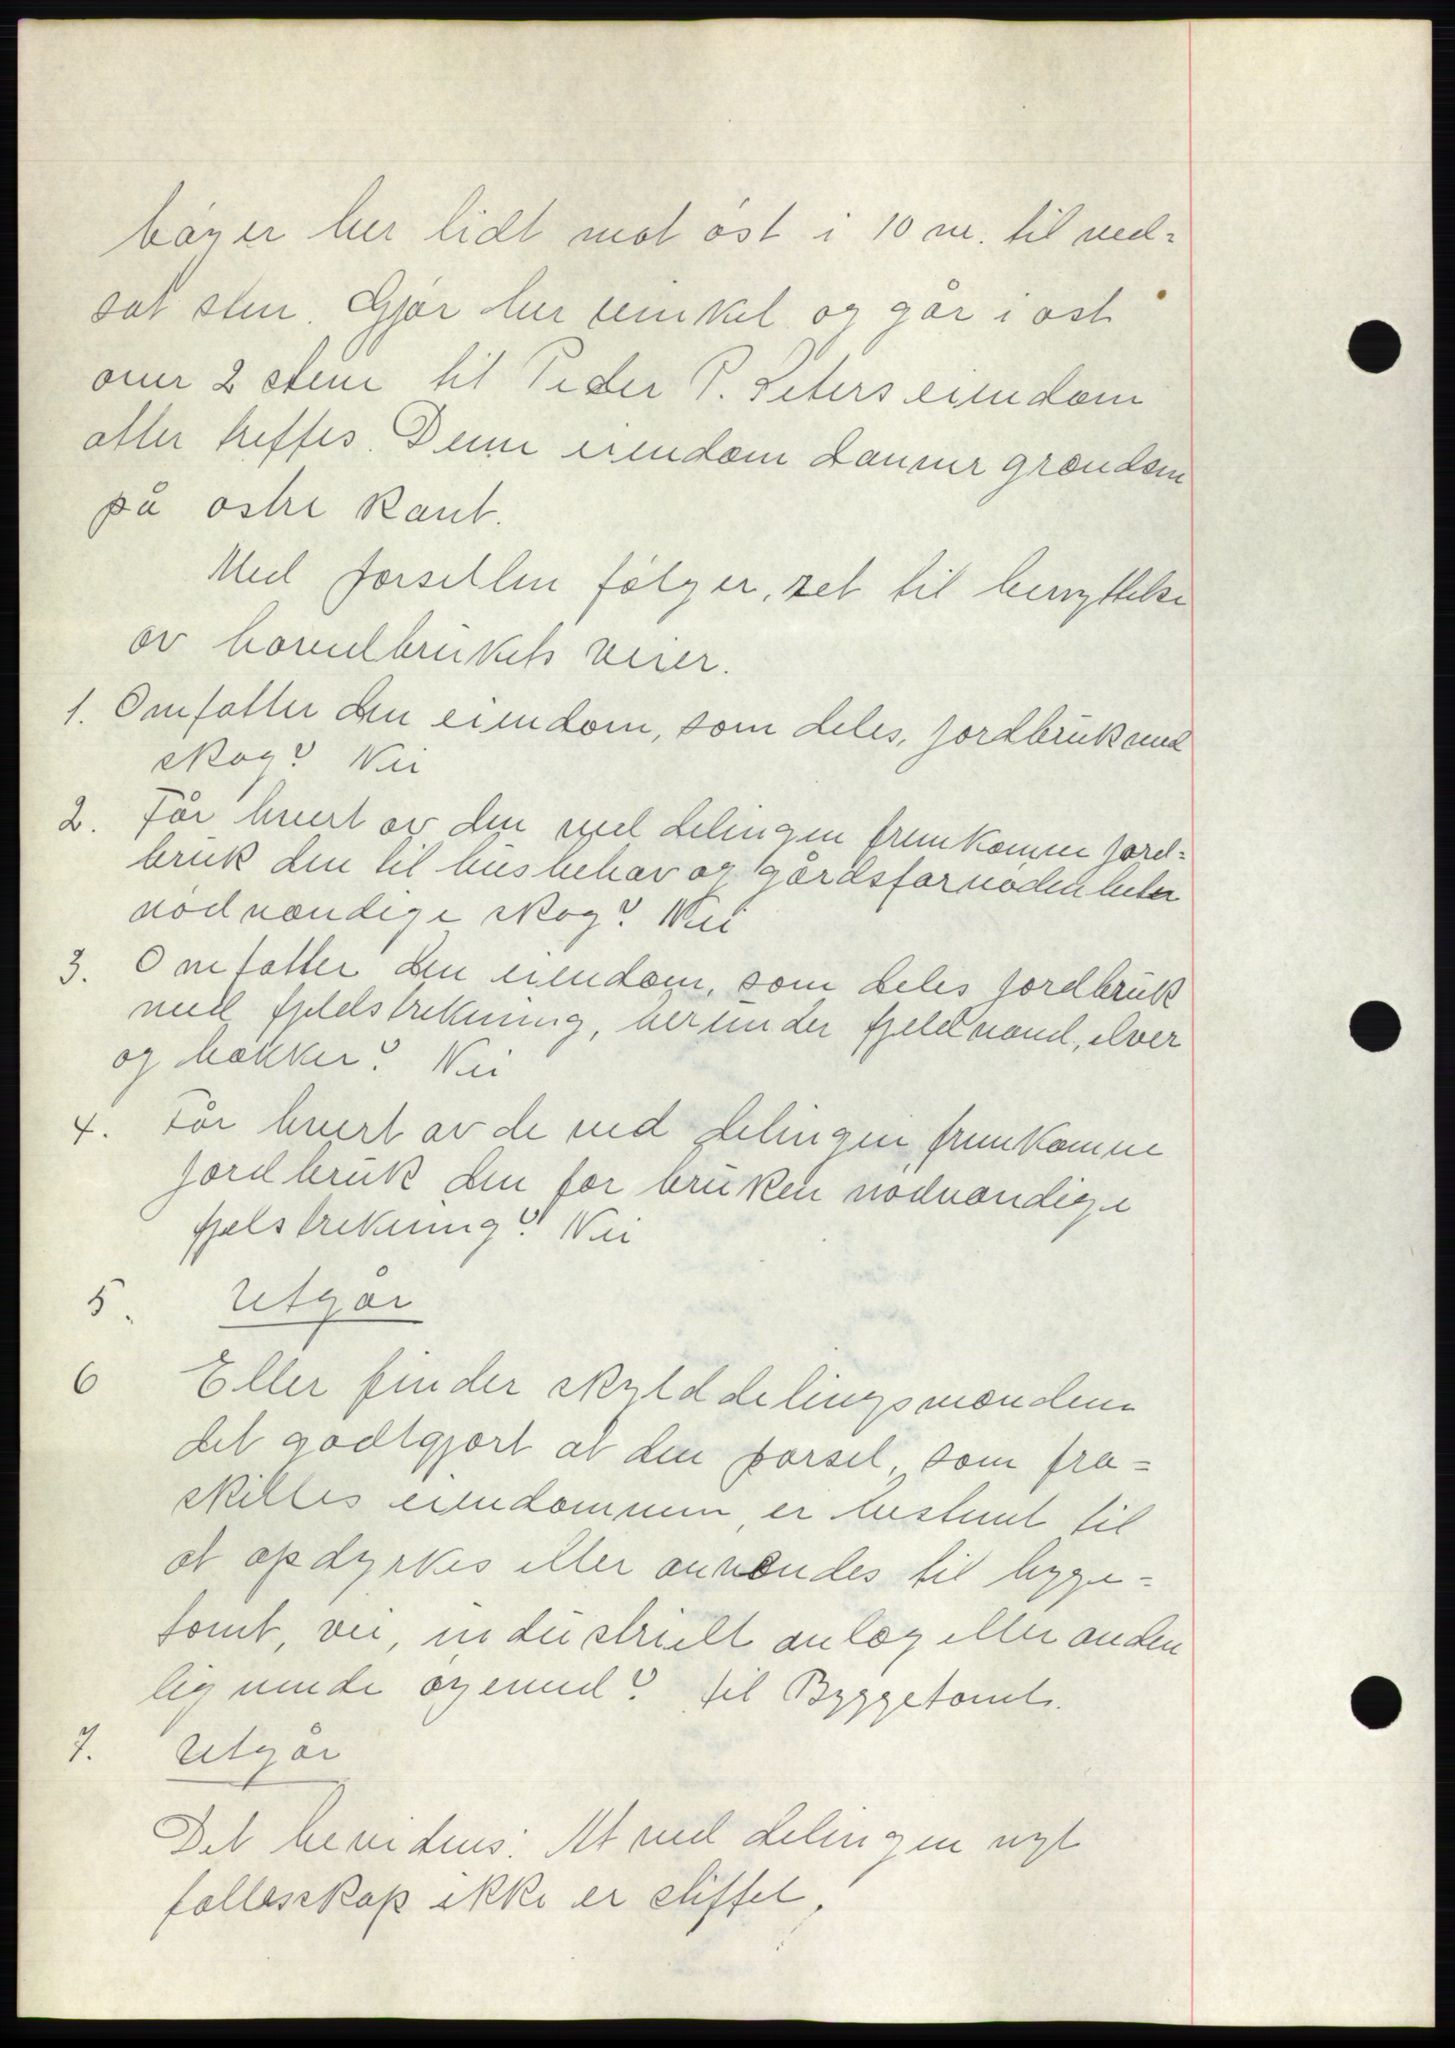 bøyer her lidt mot øst i 10 m. til ned-
sat sten. Gjør her vinkel og går i øst
over 2 stene til Peder P. Seters eiendom
atter treffes. Denne eiendom danner grændsen
på østre kant.
Med parsellen følger, ret til benyttelse
av hovedbrukets veier.
1. Omfatter den eiendom, som deles, jordbruk med
skog? Nei
2. Får hvert av den ved delingen fremkomne jord-
bruk den til husbehov og gårdsfornødenheter
nødvændige skog? Nei
3. Omfatter den eiendom, som deles jordbruk
med fjeldstrekning, herunder fjeldvand, elver
og bækker? Nei
4. Får hvert av de ved delingen fremkomne
jordbruk den for bruken nødvændige
fjelstrekning? Nei
5. Utgår
6 Eller finder skylddelingsmændene
det godtgjort at den parsel, som fra-
skilles eiendommen, er bestemt til
at opdyrkes eller anvendes til bygge-
tomt, vei, industrielt anlæg eller anden
lignende øyemed? til Byggetomt.
7. Utgår
Det bevidnes: At ved delingen nyt
fællesskap ikke er stiftet,